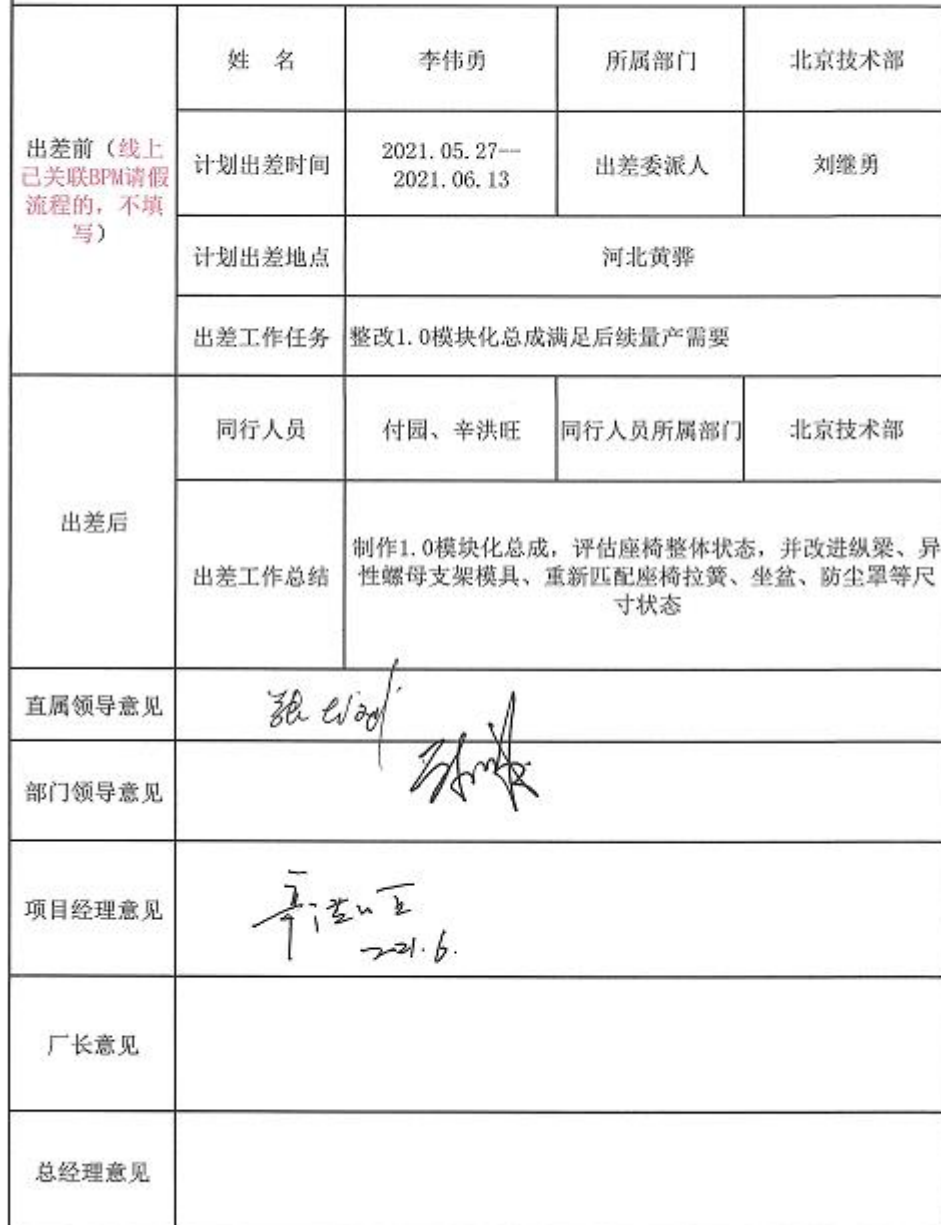 姓 名
李伟勇
所属部门
北京技术部
出差前（线上
已关联BPM请假
流程的，不填
写）
计划出差时间
2021.05.27--
2021.06.13
出差委派人
刘继勇
计划出差地点
河北黄骅
出差工作任务
整改1.0模块化总成满足后续量产需要
出差后
同行人员
付园、辛洪旺
同行人员所属部门
北京技术部
出差工作总结
制作1.0模块化总成，评估座椅整体状态，并改进纵梁、异
性螺母支架模具、重新匹配座椅拉簧、坐盆、防尘罩等尺
寸状态
直属领导意见
部门领导意见
项目经理意见
2021.6.
厂长意见
总经理意见